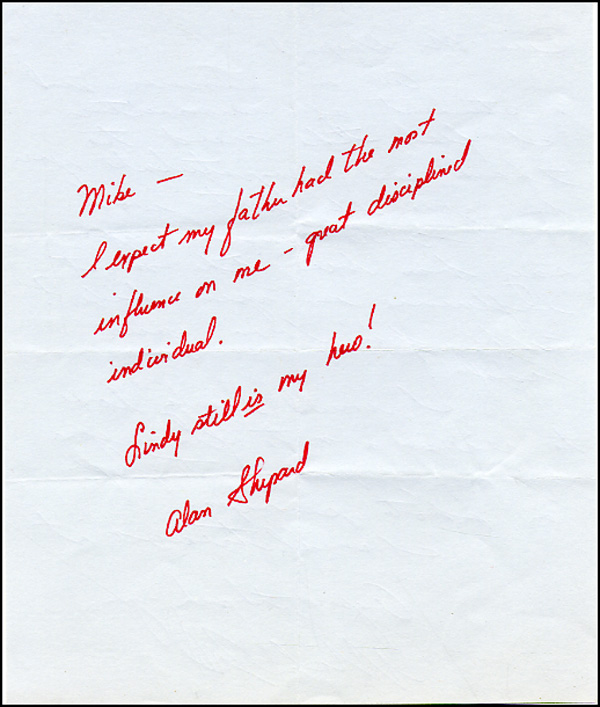 Mike —
I expect my father had the most
influence on me – great disciplined
individual.
Lindy still is my hero!
Alan Shepard